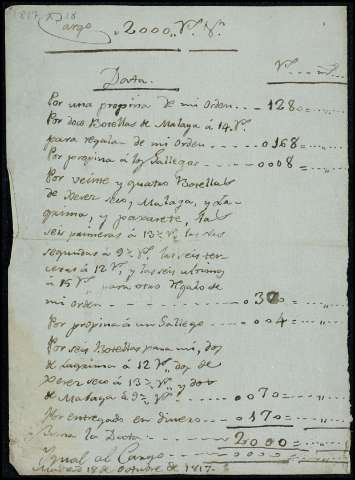 Cargo 2000,, Rs. Vn.
Data
Por una propina de mi orden 1280
Por doce Botellas de Malaga á 14 Rs.
para regalar de mi orden 0168
Por propina á los Gallegos 0008
Por veinte y quatro Botellas
de Xerez seco, Malaga, y La-
grima, y paxarete, las
seis primeras á 13½ Rs. las
segundas á 9½ Rs. las seis ter
ceras á 12 Rs. y las seis ultimas
á 15 Rs. para otro regalo de
mi orden
Por propina á un Gallego 004
Por seis Botellas para mi, dos
de Lagrima á 12 Rs. dos de
Xerez seco á 13½ Rs. y dos
de Malaga á 9½ Rs. 070
Por entregado en dinero 0170
Suma la Data 2000
Ygual al Cargo
Madrid 18 de Octubre de 1817.